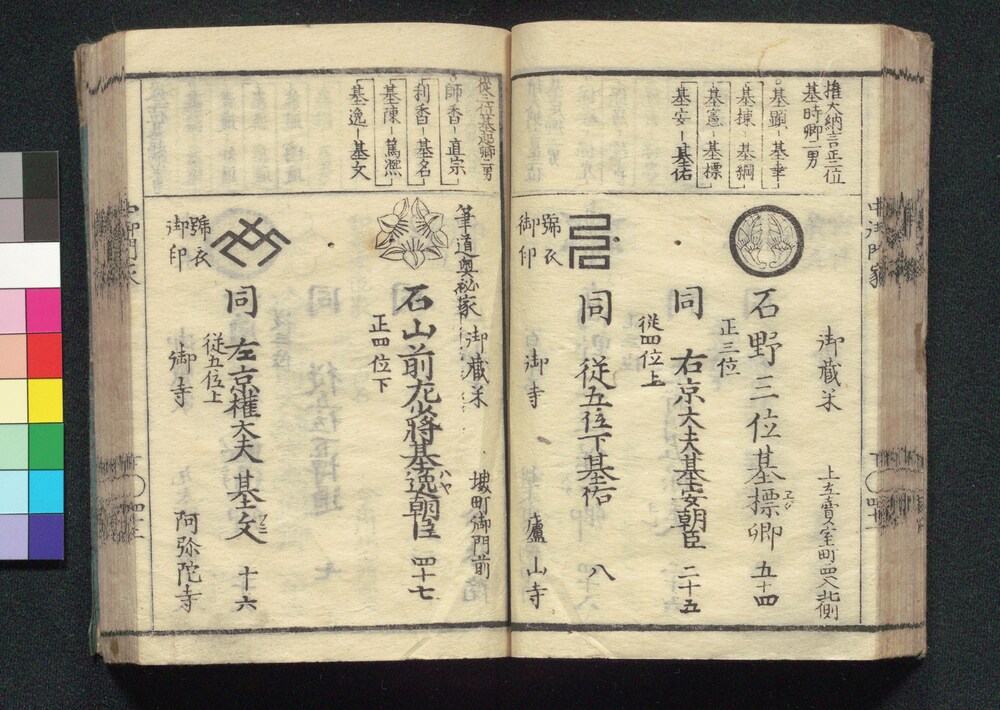 権大納言正位
基時卿一男
基顕ー基幸
基棟ー基綱
基憲ー基標
基安ー基佑
御蔵米
石野三位基標卿 五十四
正三位
同 右京大夫基安朝臣 二十五
従四位上
同 従五位下基佑 八
號衣
御印
御寺 廬山寺
従二位基起卿一男
師香ー直宗
利香ー基名
基陳ー篤凞
基逸ー基文
筆道奥秘家 御蔵米
石山前左少將基逸朝臣 四十七
ハヤ
正四位下
同 左京権大夫 基文 十六
従五位上
號衣
御印
御寺 阿弥陀寺
中御門家